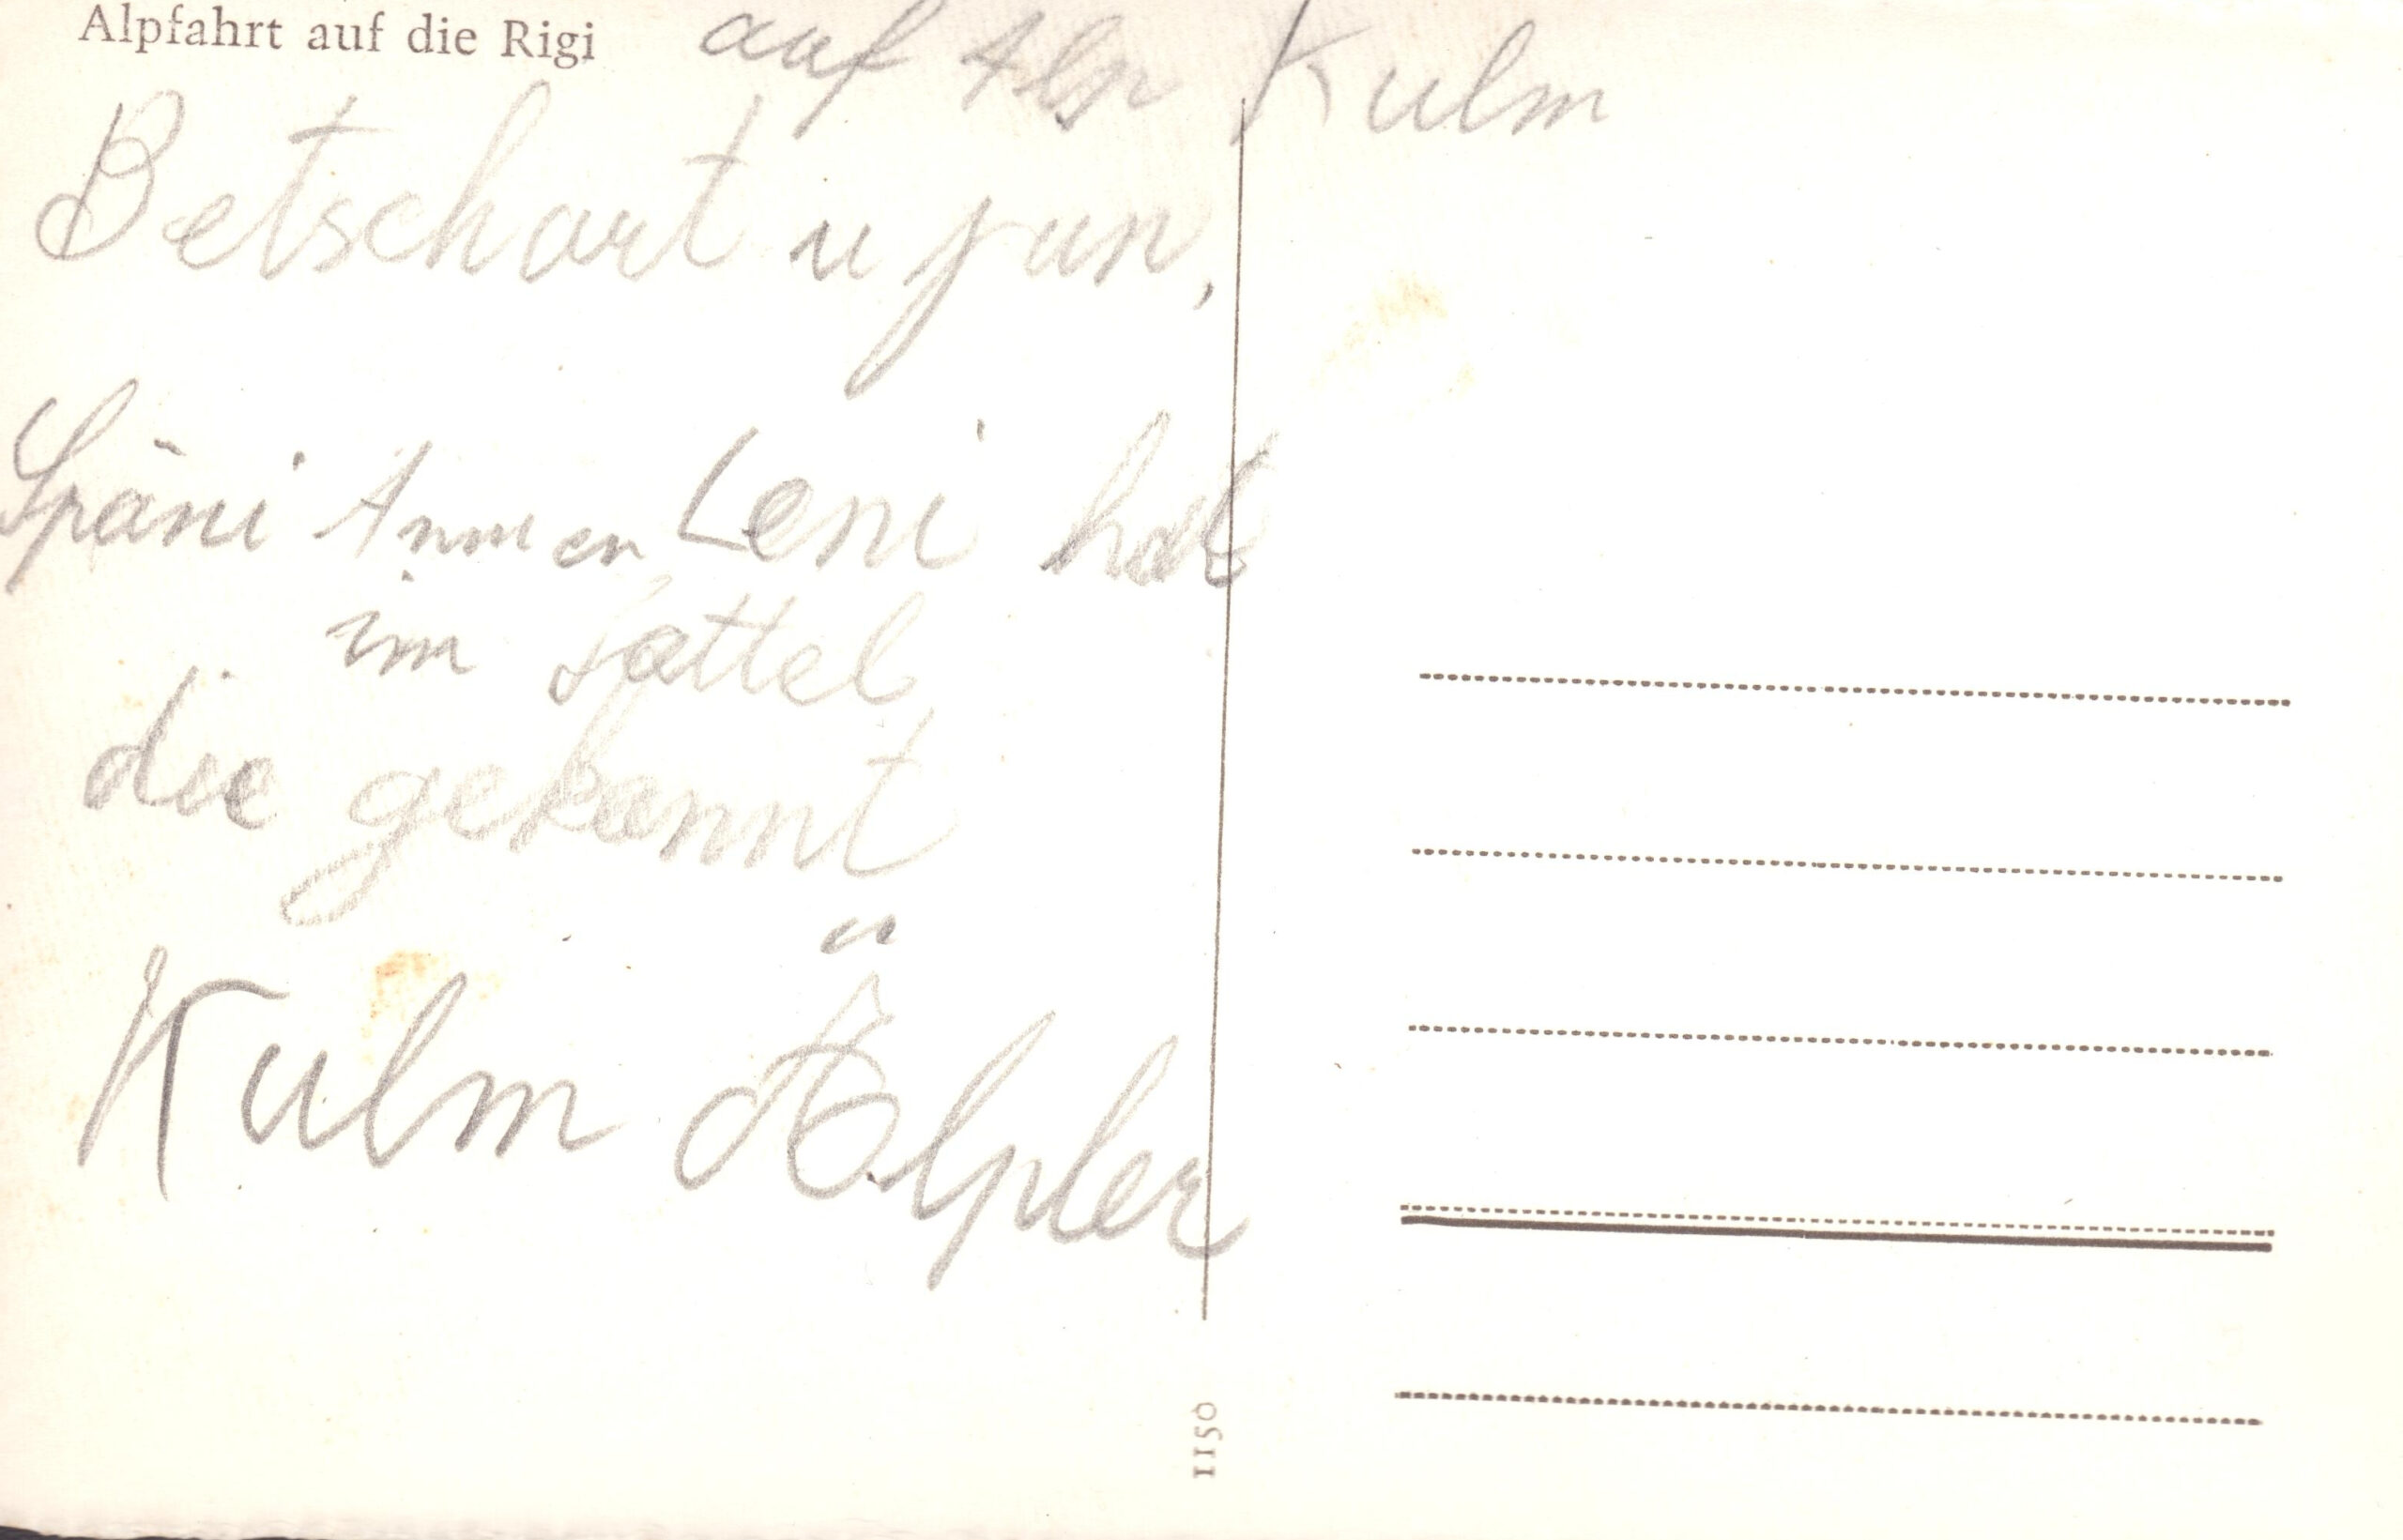 Alpfahrt auf die Rigi auf Alp Kulm
Betschart u jun,
Späni Annen Leni hat
im Sattel
die gekannt
Kulm Älpler
1150